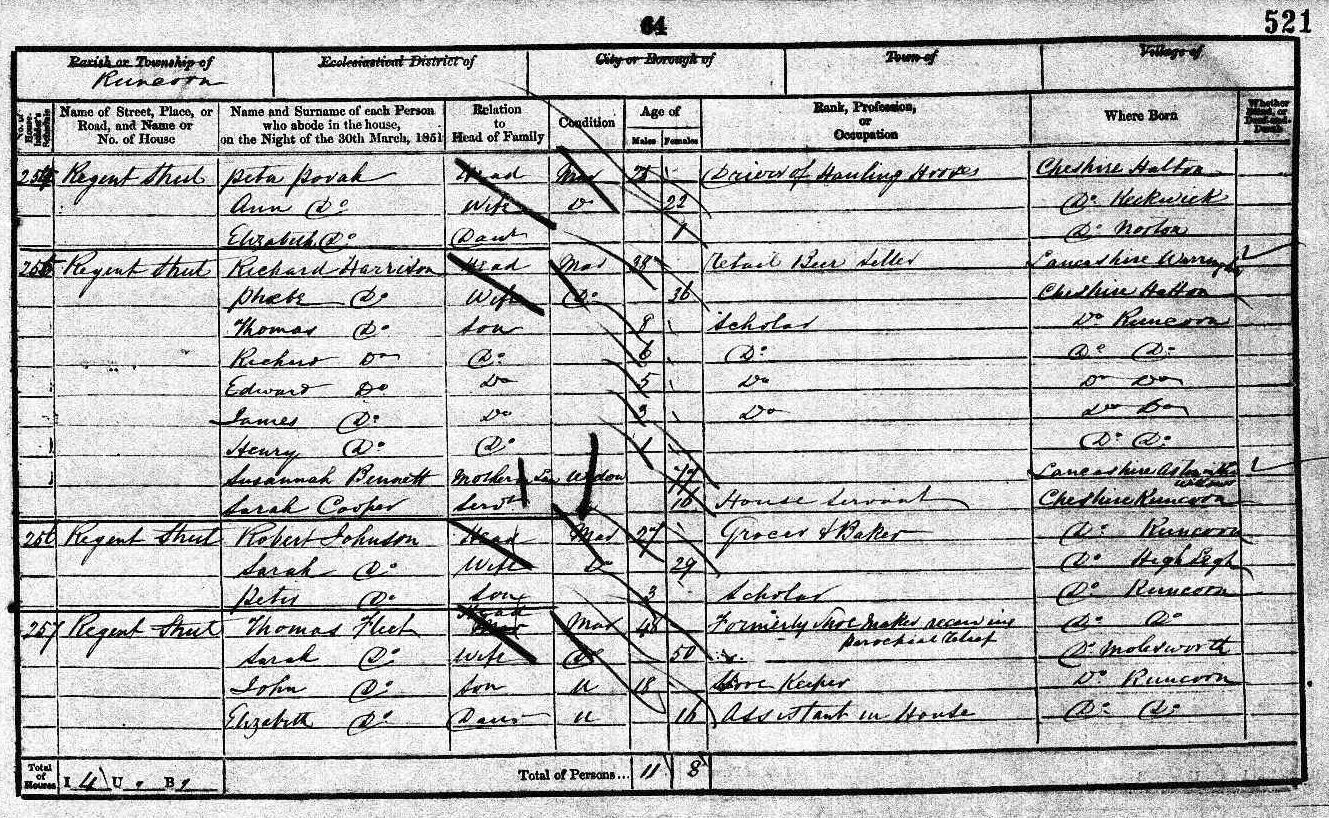 64
521
Parish or Township of Ecclesiastical District of City or Borough of Town of Village of
Runcorn
No. of House-holder's Schedule Name of Street, Place, or Road, and Name or No. of House Name and Surname of each Person who abode in the house, on the Night of the 30th March, 1851 Relation to Head of Family Condition Age of Males Females Rank, Profession, or Occupation Where Born Whether Blind, or Deaf-and-Dumb
254 Regent Street Peter Povah Head Mar Driver of Hauling Horses Cheshire Halton
Ann Do Wife Do 22 Do Keckwick
Elizabeth Do Daur 1 Do Norton
255 Regent Street Richard Harrison Head Mar 38 Retail Beer Seller Lancashire Warrington
Phœbe Do Wife Do 36 Cheshire Hatton
Thomas Do Son 8 Scholar Do Runcorn
Richard Do Do 6 Do Do Do
Edward Do Do 5 Do Do Do
James Do Do 3 Do Do Do
Henry Do Do 1 Do Do
Susannah Bennett Mother in Law Widow 77 Lancashire
Sarah Cooper Servt 16 House Servant Cheshire Runcorn
256 Regent Street Robert Johnson Head Mar 27 Grocer & Baker Do Runcorn
Sarah Do Wife Do 29 Do High Legh
Peter Do Son 3 Scholar Do Runcorn
257 Regent Street Thomas Fleet Head Mar 48 Formerly Shoe Maker receiving Parochial Relief Do Do
Sarah Do Wife Do 50 Do Molesworth
John Do Son U 18 Store Keeper Do Runcorn
Elizabeth Do Daur U 16 Assistant in House Do Do
Total of Houses I 4 U B Total of Persons... 11 8